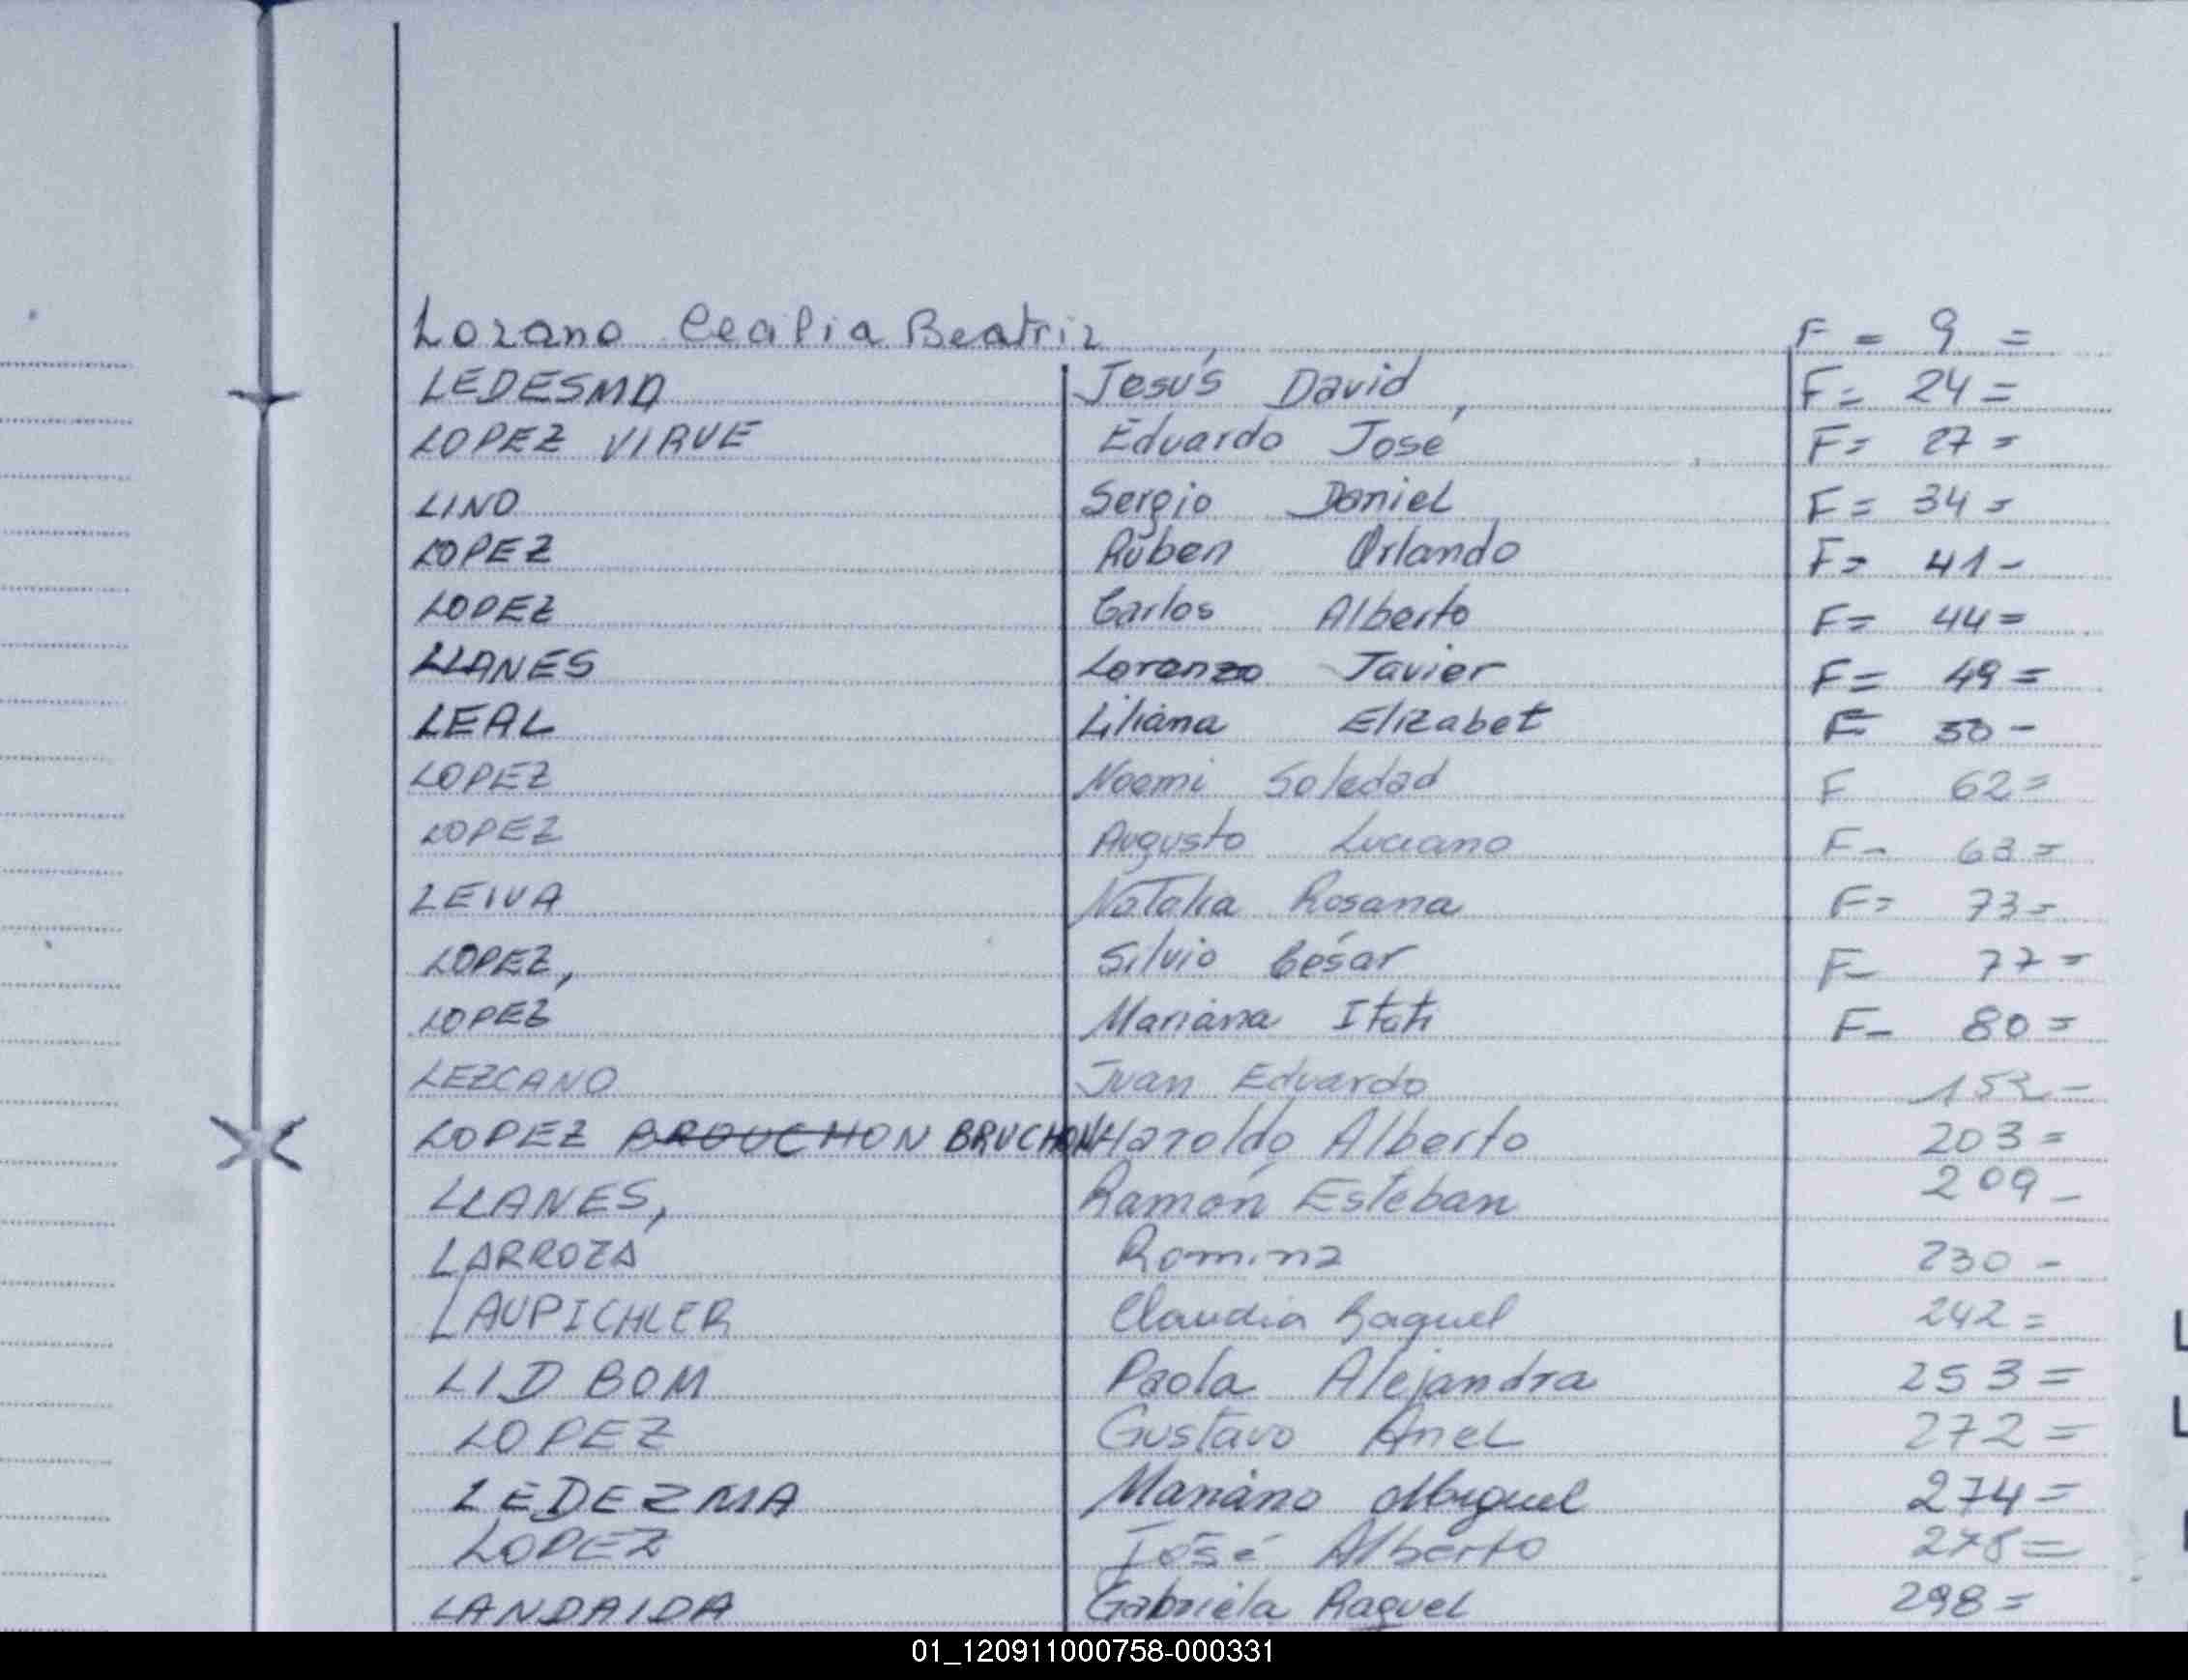 Lozano Cecilia Beatriz F = 9 =
LEDESMA Jesús David F= 24 =
LOPEZ VIRUE Eduardo José F= 27 =
LINO Sergio Daniel F= 34 =
LOPEZ Rúben Orlando F= 41 -
LOPEZ Carlos Alberto F= 44 =
LLANES Lorenzo Javier F= 49 =
LEAL Liliana Elizabet F= 50 -
LOPEZ Noemi Soledad F 62 =
LOPEZ Augusto Luciano F- 63 =
LEIVA Natalia Rosana F= 73 =
LOPEZ, Silvio César F- 77 =
LOPEZ Mariana Itatí F- 80 =
LEZCANO Juan Eduardo 152 -
LOPEZ BROUCHON BRUCHON Haroldo Alberto 203 =
LLANES, Ramón Esteban 209 -
LARROZA Romina 230 -
LAUPICHLER Claudia Raquel 242 =
LID BOM Paola Alejandra 253 =
LOPEZ Gustavo Ariel 272 =
LEDEZMA Mariano Miguel 274 =
LOPEZ José Alberto 278 =
LANDAIDA Gabriela Raquel 298 =
01_120911000758-000331